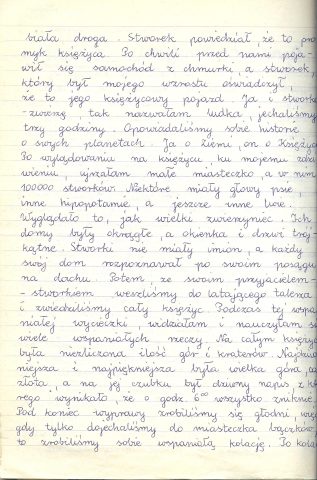 biała droga. Stworek powiedział że to pro
myk księżyca. Po chwili przed nami poja-
wił się samochód z chmurki, a stworek,
który był mojego wzrostu oświadczył,
że to jego księżycowy pojazd. Ja i stworko-
tak nazwałam ludka, jechaliśmy
trzy godziny. Opowiadaliśmy sobie historie
o swych planetach. Ja o Ziemi, on o Księżycu
Po wylądowaniu na księżycu, ku mojemu zdzi
wieniu, ujrzałam małe miasteczko, a w nim
100000 stworków. Niektóre miały głowy psie,
inne hipopotamie, a jeszcze inne lwie.
Wyglądało to, jak wielki zwierzyniec. Ich
domy były okrągłe, a okienka i drzwi trój-
kątne. Stworki nie miały imion, a każdy
swój dom rozpoznawał po swoim posągu
na dachu. Potem, ze swoim przyjacielem-
- stworkiem weszliśmy do latającego talerza
i zwiedzaliśmy cały księżyc. Podczas tej wspa
niałej wycieczki, widziałam i nauczyłam się
wiele wspaniałych rzeczy. Na całym księżycu
była niezliczona ilość gór i kraterów. Najważ
niejsza i najpiękniejsza była wielka góra, ze
złota, a na jej czubku był dziwny napis, z któ
rego wynikało, że o godz. 6⁰⁰ wszystko zniknie.
Pod koniec wyprawy zrobiliśmy się głodni, więc
gdy tylko dojechaliśmy do miasteczka bączków
to zrobiliśmy sobie wspaniałą kolację. Po kolac